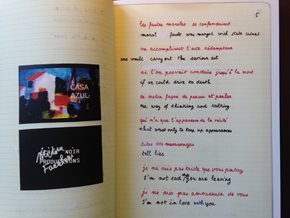 CASA
AZUL
NOIR
PRODUCTIONS
5
les fautes morales se confondaient
moral faults was merged with state crimes
on accomplirait l'acte rédempteur
one would carry out the serious act
si l'on pouvait conduire jusqu'à la mort
if we could drive to death
de notre façon de penser et parler
the way of thinking and talking
qui n'a que l'apparence de la vérité
that want only to keep up appearances
dites des mensonges
tell lies
je ne suis pas triste que vous partiez
I'm not sad you are leaving
je ne suis pas amoureuse de vous
I'm not in love with you